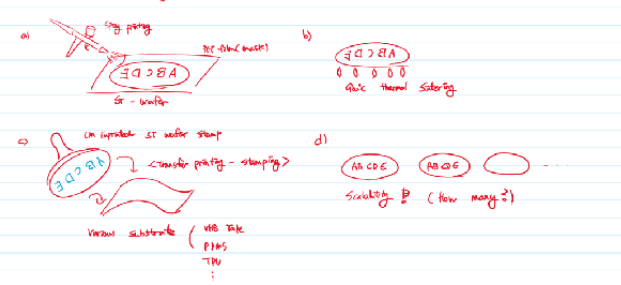 a)
Spray printing
PET film (mask)
ABCDE
Si - wafer
b)
ABCDE
Quick thermal sintering
c)
LM imprinted Si wafer stamp
ABCDE
<Transfer printing - stamping>
Various substrate
VHB Tape
PDMS
TPU
⋮
d)
ABCDE
ABCDE
.....
Scalability ? (How many?)